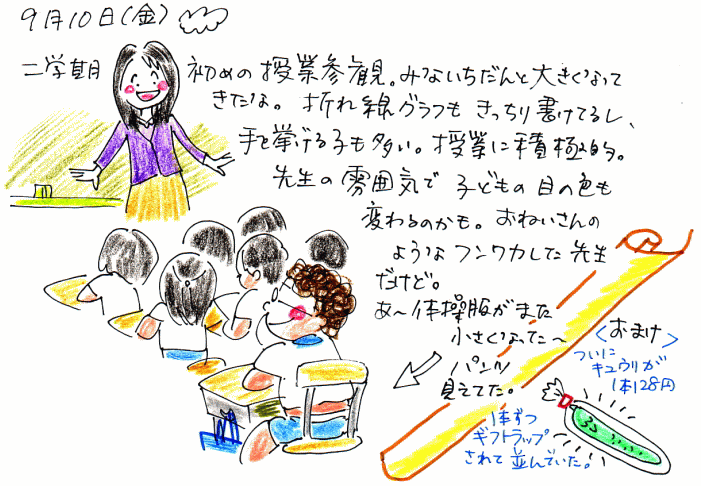 9月10日(金)
二学期 初めの授業参観。みないちだんと大きくなって
きたな。折れ線グラフもきっちり書けてるし、
手を挙げる子も多い。授業に積極的。
先生の雰囲気で子どもの目の色も
変わるのかも。おねいさんの
ようなフンワカした先生
だけど。
あ〜体操服がまた
小さくなってた〜
パンツ
見えてた。
<おまけ>
ついに
キュウリが
1本128円
1本ずつ
ギフトラップ
されて並んでいた。